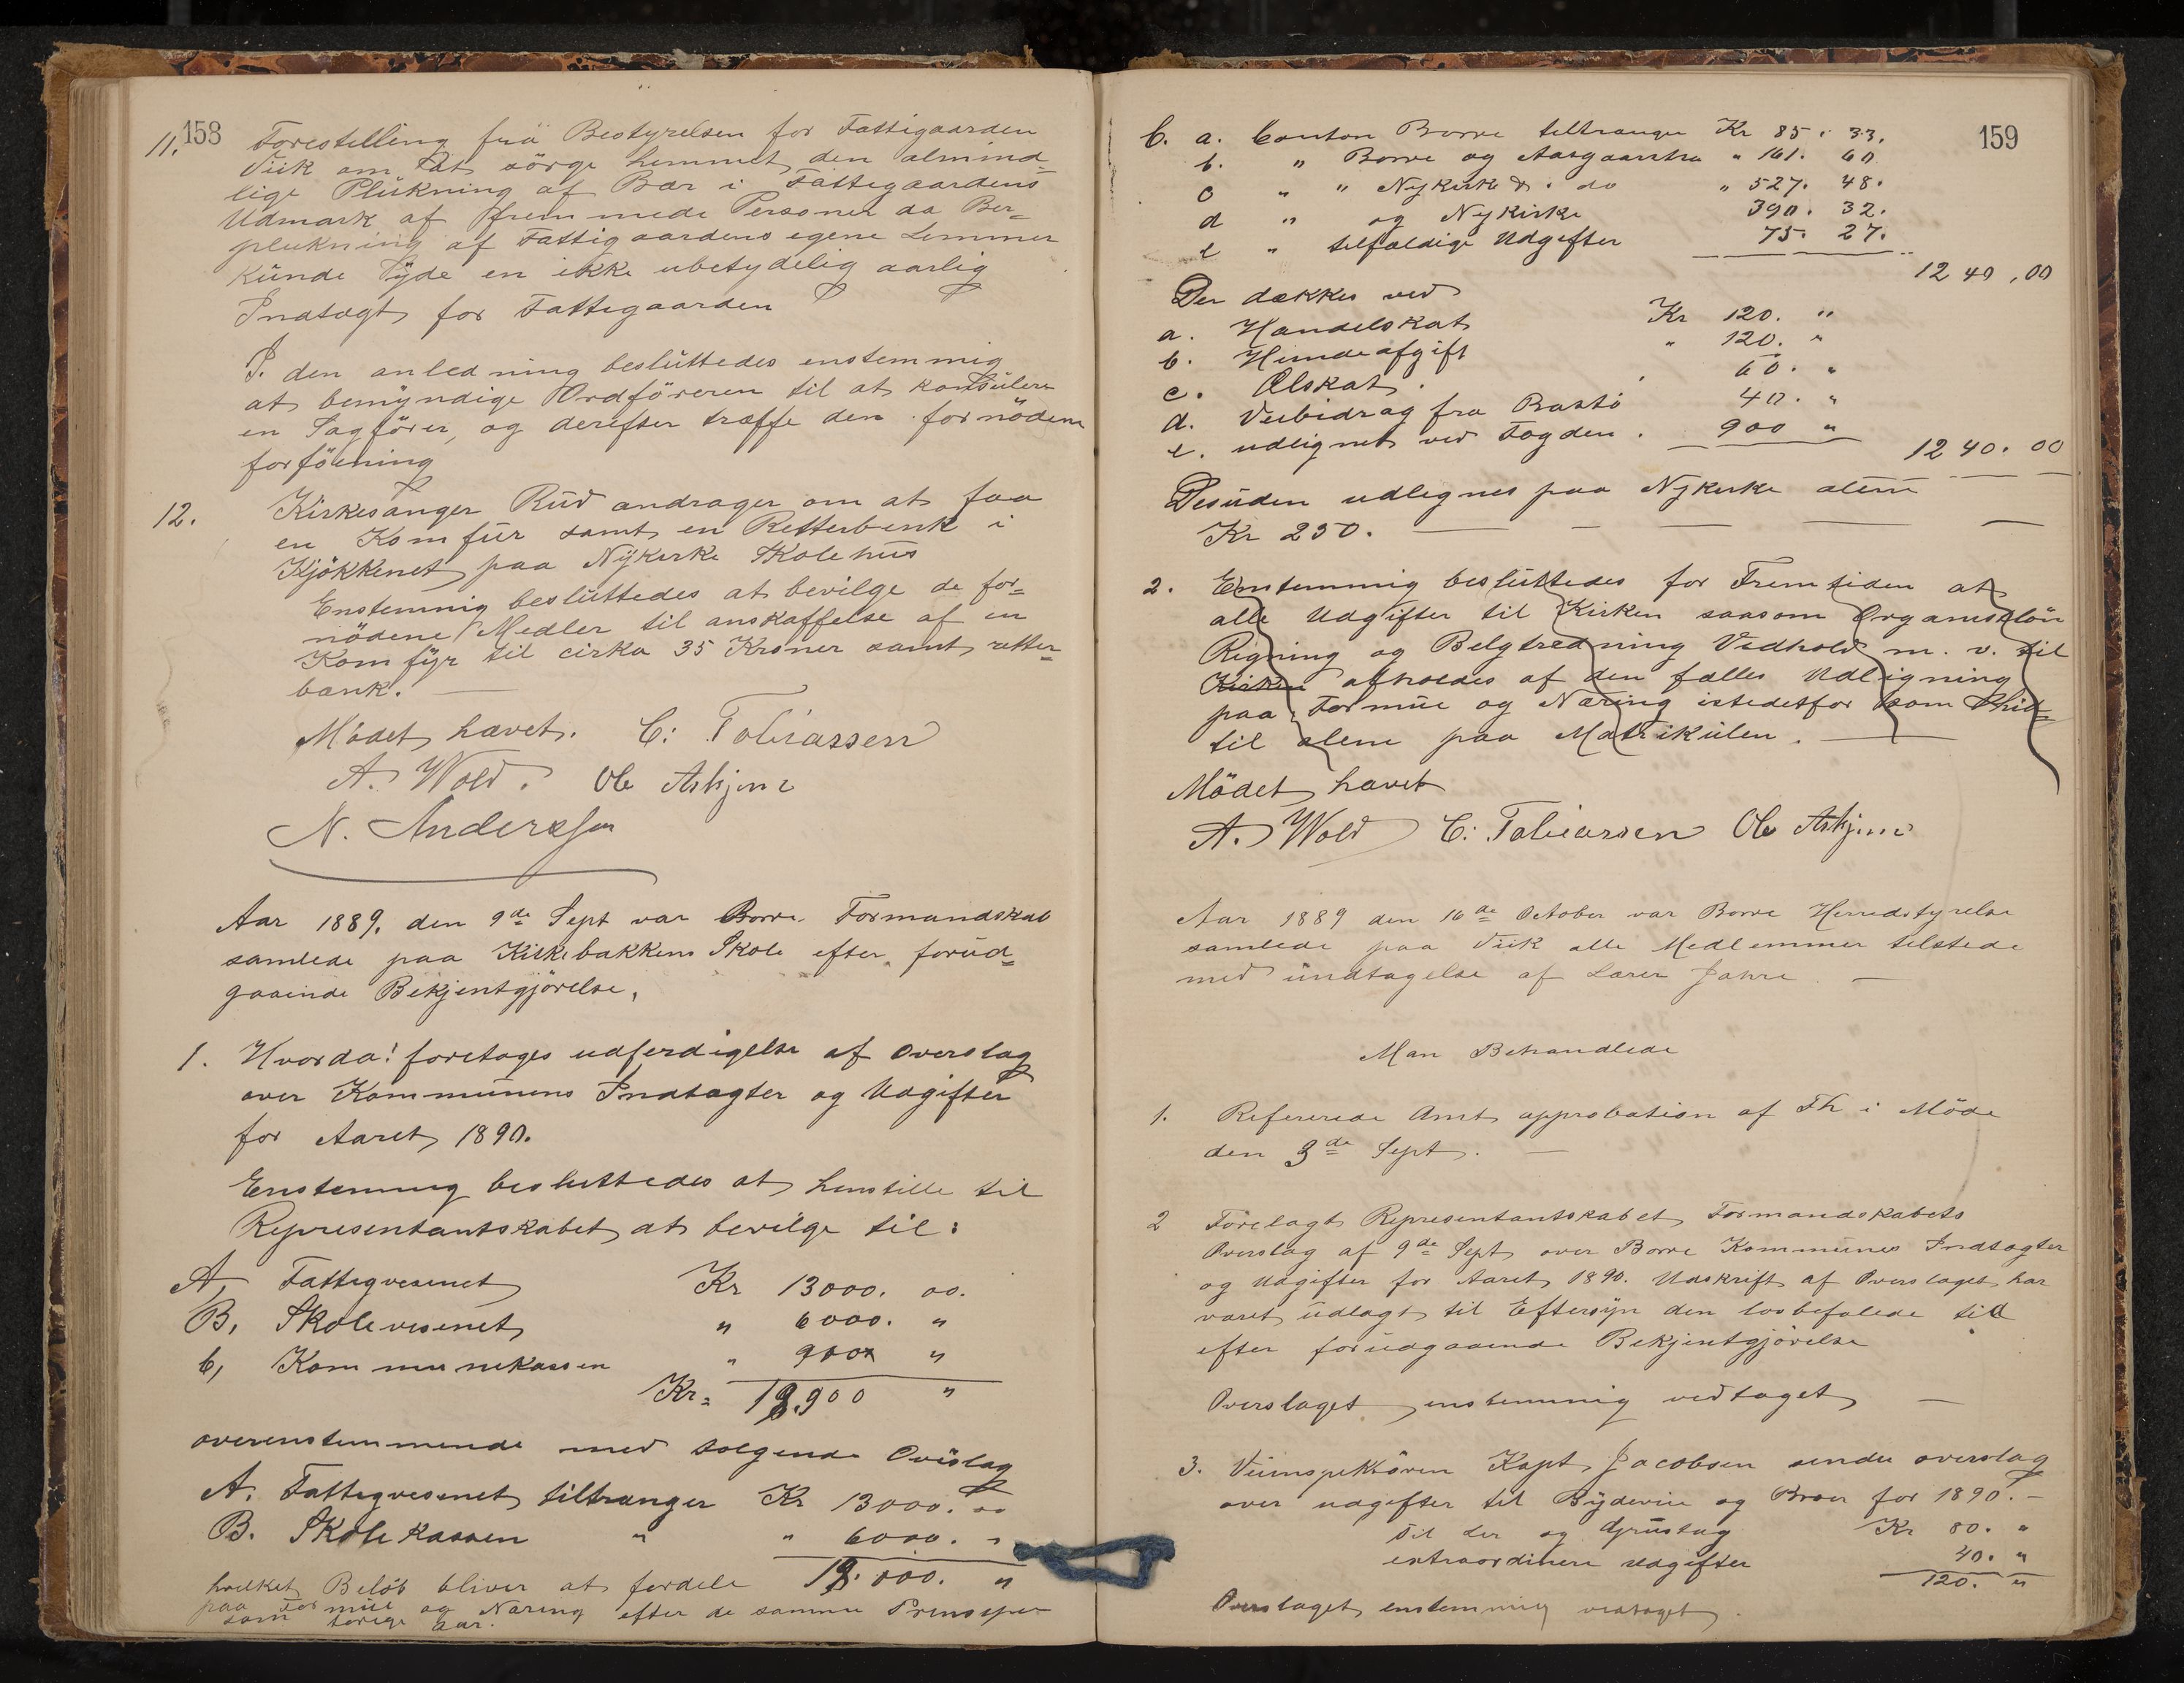 158
11. Forestilling fra Bestyrelsen for Fattigaarden
Viik om at sörge hemmet den almind=
lige Plükning af Bær i Fattegaardens
Udmark af fremmede Personer da Ber=
plukning af Fattigaardens egene Lemmer
künde yde en ikke ubetydelig aarlig
Indtægt for Fattegaarden
I den anledning beslüttedes enstemmig
at bemÿndige Ordföreren til at konsülere
en Sagförer, og derefter træffe den fornödene
forföining
12. Kirkesanger Rüd andrager om at faa
en Komfür samt en Retterbenk i
Kjökkenet paa Nÿkirke Skolehüs
Enstemmig beslüttedes at bevilge de for=
nödene Medler til anskaffelse af en
Komfÿr til cirka 35 Kroner samt retter=
bænk.
Mödet hævet. C: Tobiassen
A. Wold. Ole Askjem
N. Anderssen
Aar 1889. den 9de Sept var Borre Formandskab
samlede paa Kirkebakkens Skole efter forüd=
gaaende Bekjentgjörelse,
1. Hvorda! foretages udferdigelse af Overslag
over Kommünens Indtægter og Udgifter
for Aaret 1890.
Enstemmig besluttedes at henstille til
Representantskabet at bevilge til:
A, Fattegvesenet Kr 13000. oo.
B, Skolevesenet " 6000. "
C, Kommunekassen " 900 "
Kr= 19.900 "
overenstemmende med følgende Ovöslag
A. Fattegvesenet tiltrænger Kr 13000. oo
B. Skolekassen " " 6000. "
hvilket Belöb bliver at fordele 19.000. "
paa Formüe og Næring efter de samme Prinsiper
som forige Aar.
159
C. a. Conton Borre tiltrænger Kr 85. 33.
b. " Borre og Aasgaarstra " 161. 60
c " " Nykirke do " 527. 48.
d " og Nykirke 390. 32.
e " tilfældige Udgifter 75. 27.
1240,00
Der dækkes ved
a. Handelskat Kr 120. "
b. Hundeafgift " 120. "
c. Ølskat. 60. "
d. Veibidrag fra Bastö 40. "
e. udlignet ved Fogden. 900 "
1240.00
Desüden udlegnes paa Nykirke alene
Kr 250.
2. Enstemmig beslüttedes for Fremtiden at
alle Udgifter til Kirken saasom Organistlön
Rigning og Belgtredning Vedhold m. v. til
Kirken afholdes af den fælles Udligning
paa Formüe og Næring istedetfor som Thid=
til alene paa Matrikülen.
Mödet hævet
A. Wold C: Tobiassen Ole Askjem
Aar 1889 den 16de October var Borre Herredstyrelse
samlede paa Viik alle Medlemmer tilstede
med ündtagelse af Lærer Jahre
Man Behandlede
1. Refererede Amts approbation af Fh i Möde
den 3de Sept.
2 Forelagt Representantskabet Formandskabets
Overslag af 9de Sept over Borre Kommünes Indtægter
og Udgifter for Aaret 1890. Udskrift af Overslaget har
været üdlagt til Eftersÿn den lovbefalede tid
efter forüdgaaende Bekjentgjörelse
Overslaget enstemmig vedtaget
3. Veiinspektören Kapt Jacobsen sender overslag
over udgifter til Bÿdeveie og Broer for 1890.
til Ler og Grüstag Kr 80. "
extraordinere Udgifter 40. "
120. "
Overslaget enstemmig vedtaget.